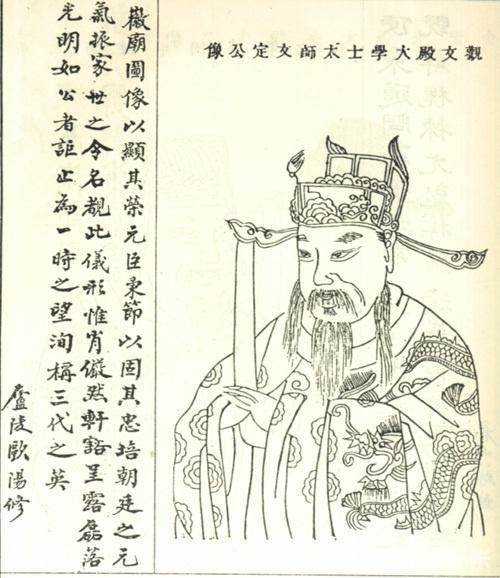 觀文殿大學士太師文定公像
廟圖像以顯其榮元臣秉節以固其忠培朝廷之元
氣振家世之令名覩此儀形惟肖儼然軒豁呈露磊落
光明如公者詎止為一時之望洵稱三代之英
廬陵歐陽修